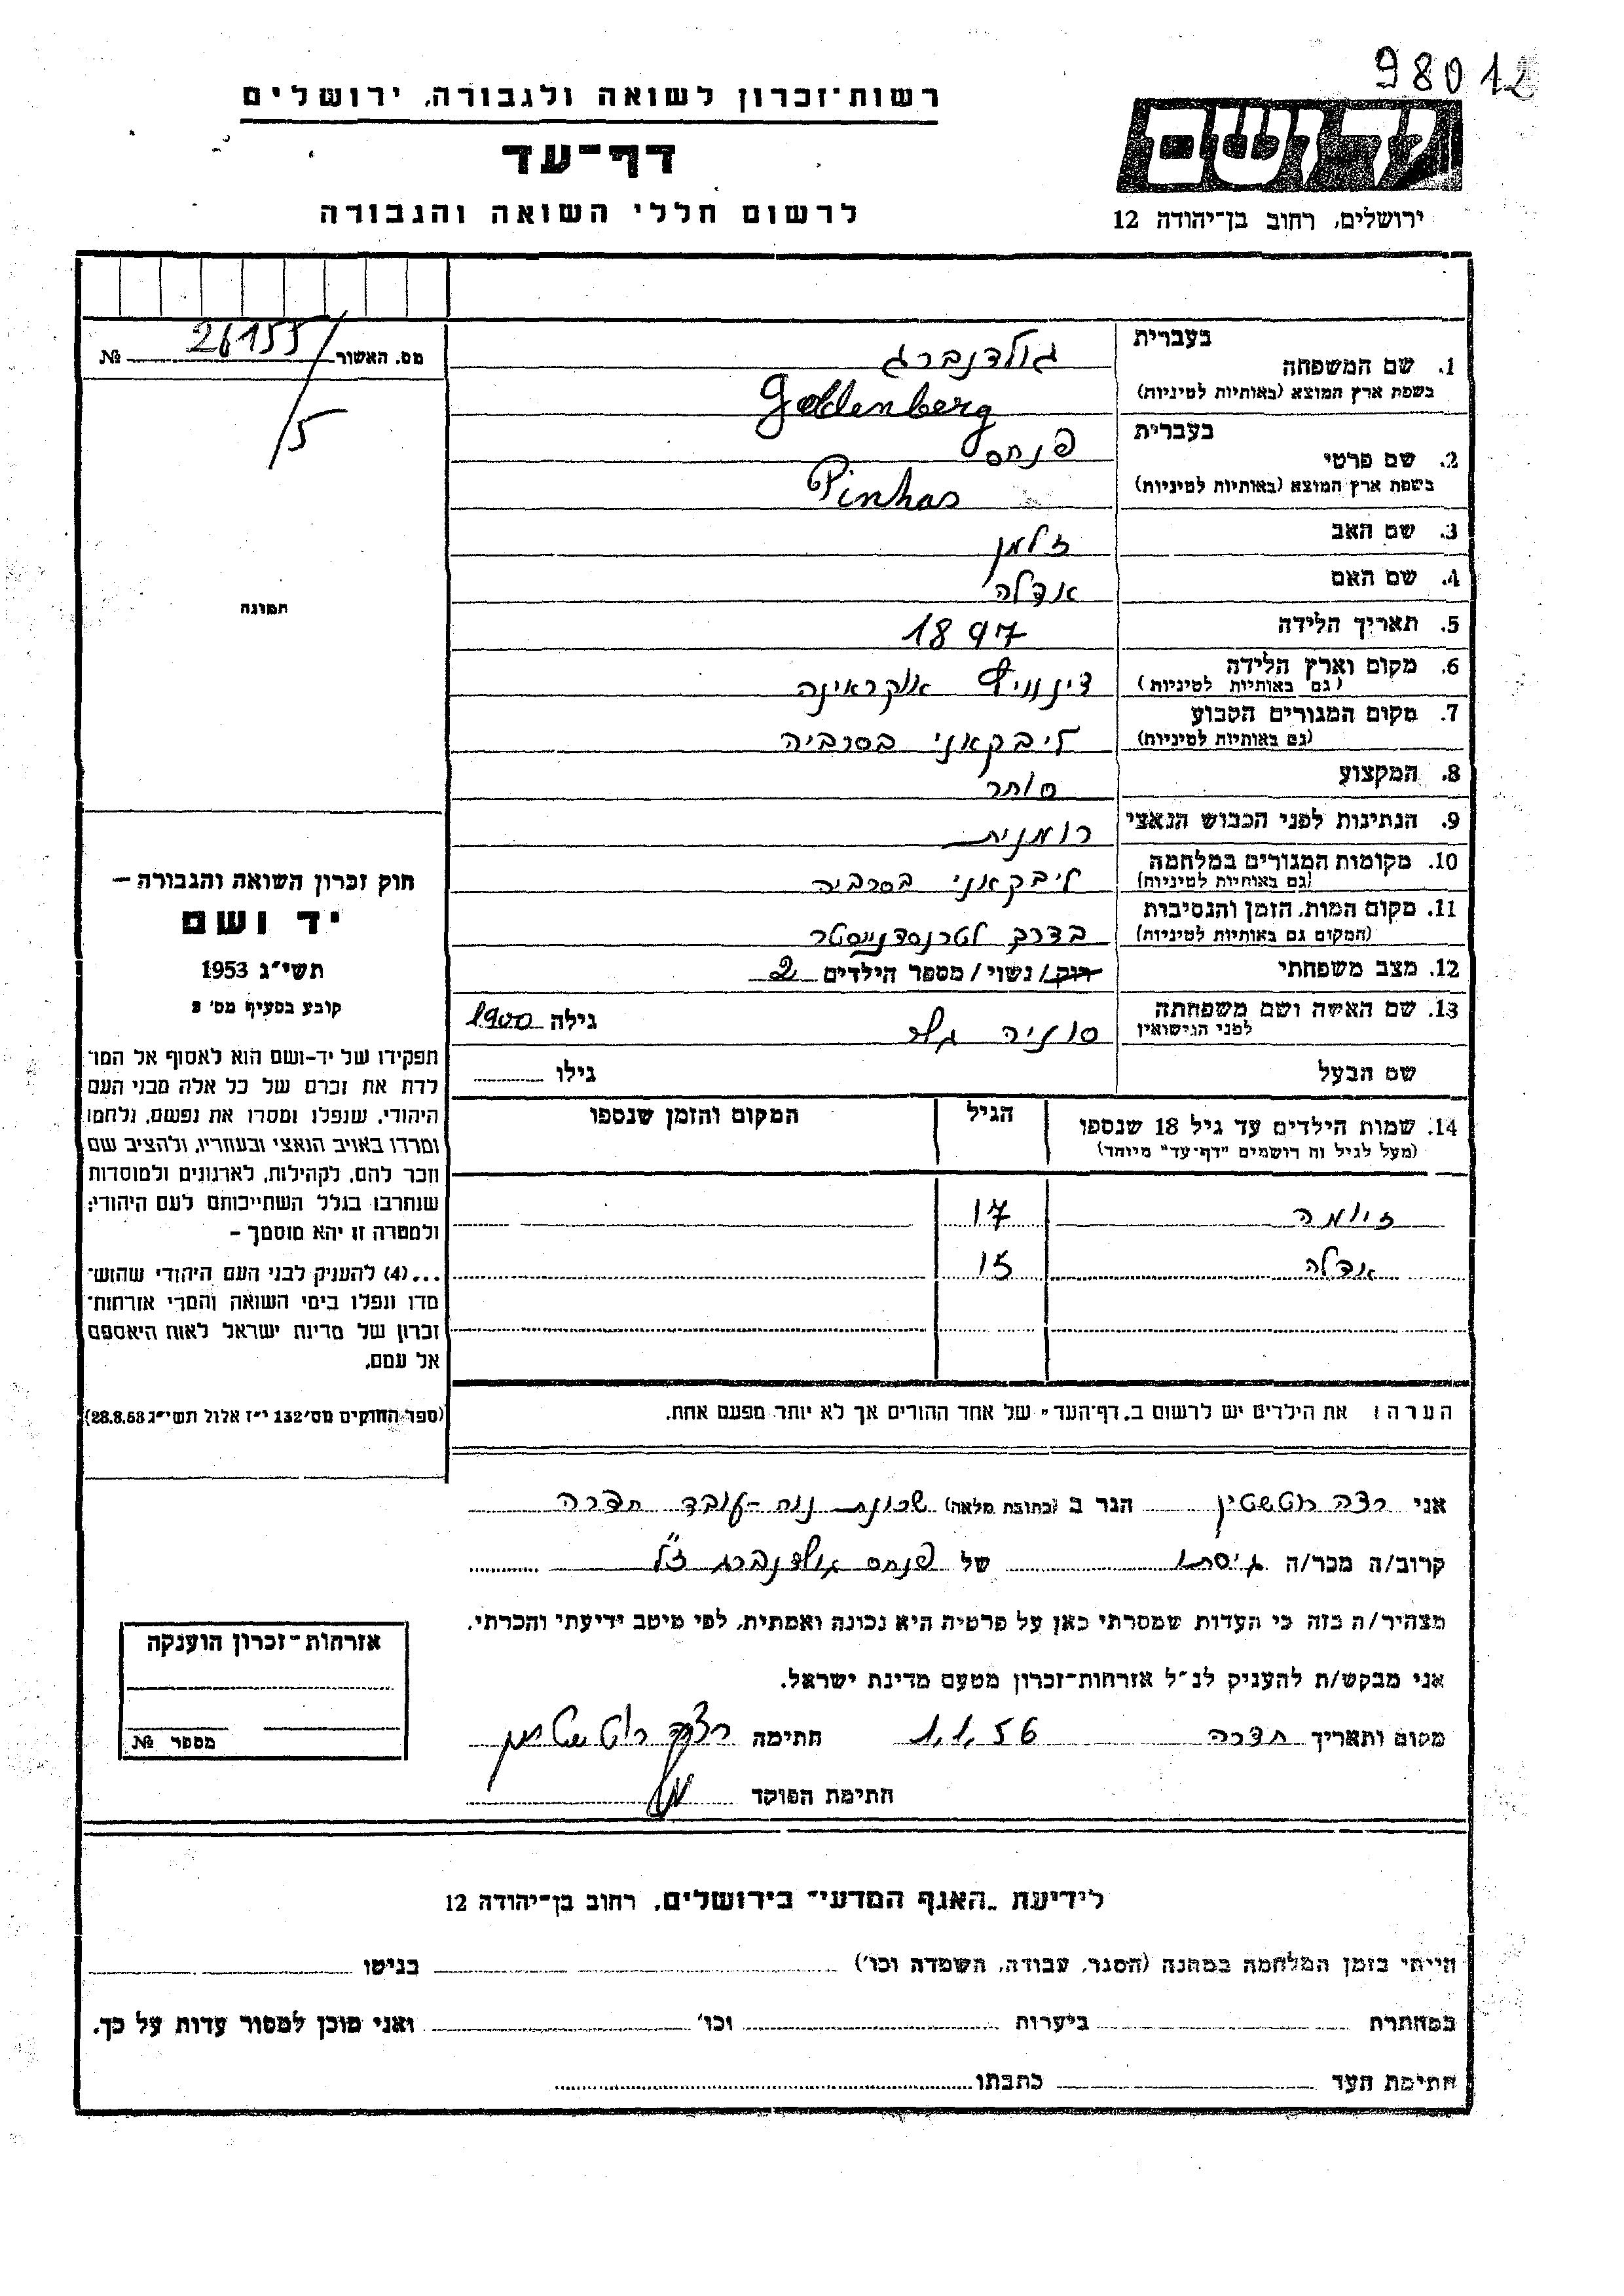 98012
רשות־זכרון לשואה ולגבורה, ירושלים
דף־עד
לרשום חללי השואה והגבורה
ידושם
ירושלים, רחוב בן־יהודה 12
מס. האשור 26155/5 №
תמונה
בעברית
1. שם המשפחה גולדנברג
בשפת ארץ המוצא (באותיות לטיניות) Goldenberg
בעברית
2. שם פרטי פנחס
בשפת ארץ המוצא (באותיות לטיניות) Pinhas
3. שם האב זלמן
4. שם האם אדלה
5. תאריך הלידה 1897
6. מקום וארץ הלידה אוקראינה
(גם באותיות לטיניות)
7. מקום המגורים הקבוע ליבקאני בסרביה
(גם באותיות לטיניות)
8. המקצוע סוחר
9. הנתינות לפני הכבוש הנאצי רומנית
10. מקומות המגורים במלחמה ליבקאני בסרביה
(גם באותיות לטיניות)
11. מקום המות, הזמן והנסיבות בדרך לטרנסדנייסטר
(המקום גם באותיות לטיניות)
12. מצב משפחתי רוק/ נשוי/ מספר הילדים 2
13. שם האשה ושם משפחתה סוניה גילה 1900
לפני הנישואין
שם הבעל גילו
14. שמות הילדים עד גיל 18 שנספו הגיל המקום והזמן שנספו
(מעל לגיל זה רושמים "דף־עד" מיוחד)
זיומה 17
אדלה 15
הערה: את הילדים יש לרשום ב„דף־העד" של אחד ההורים אך לא יותר מפעם אחת.
חוק זכרון השואה והגבורה –
יד ושם
תשי"ג 1953
קובע בסעיף מס' 2
תפקידו של יד-ושם הוא לאסוף אל המו־
לדת את זכרם של כל אלה מבני העם
היהודי, שנפלו ומסרו את נפשם, נלחמו
ומרדו באויב הנאצי ובעוזריו, ולהציב שם
וזכר להם, לקהילות, לארגונים ולמוסדות
שנחרבו בגלל השתייכותם לעם היהודי;
ולמטרה זו יהא מוסמך –
...(4) להעניק לבני העם היהודי שהוש־
מדו ונפלו בימי השואה והמרי אזרחות־
זכרון של מדינת ישראל לאות היאספם
אל עמם.
(ספר החוקים מס' 132 י"ז אלול תשי"ג 28.8.53)
אני רצה רוטשטין הגר ב (כתובת מלאה) שכונת נוה-עובד חדרה
קרוב/ה מכר/ה גיסתו של פנחס גולדנברג ז"ל
מצהיר/ה בזה כי העדות שמסרתי כאן על פרטיה היא נכונה ואמתית, לפי מיטב ידיעתי והכרתי.
אני מבקש/ת להעניק לנ"ל אזרחות־זכרון מטעם מדינת ישראל.
מקום ותאריך חדרה 1.1.56 חתימה רצה רוטשטין
חתימת הפוקד
אזרחות־זכרון הוענקה
מספר №
לידיעת „האגף המדעי" בירושלים, רחוב בן־יהודה 12
הייתי בזמן המלחמה במחנה (הסגר, עבודה, השמדה וכו') בגיטו
במחתרת ביערות וכו' ואני מוכן למסור עדות על כך.
חתימת העד כתבתו